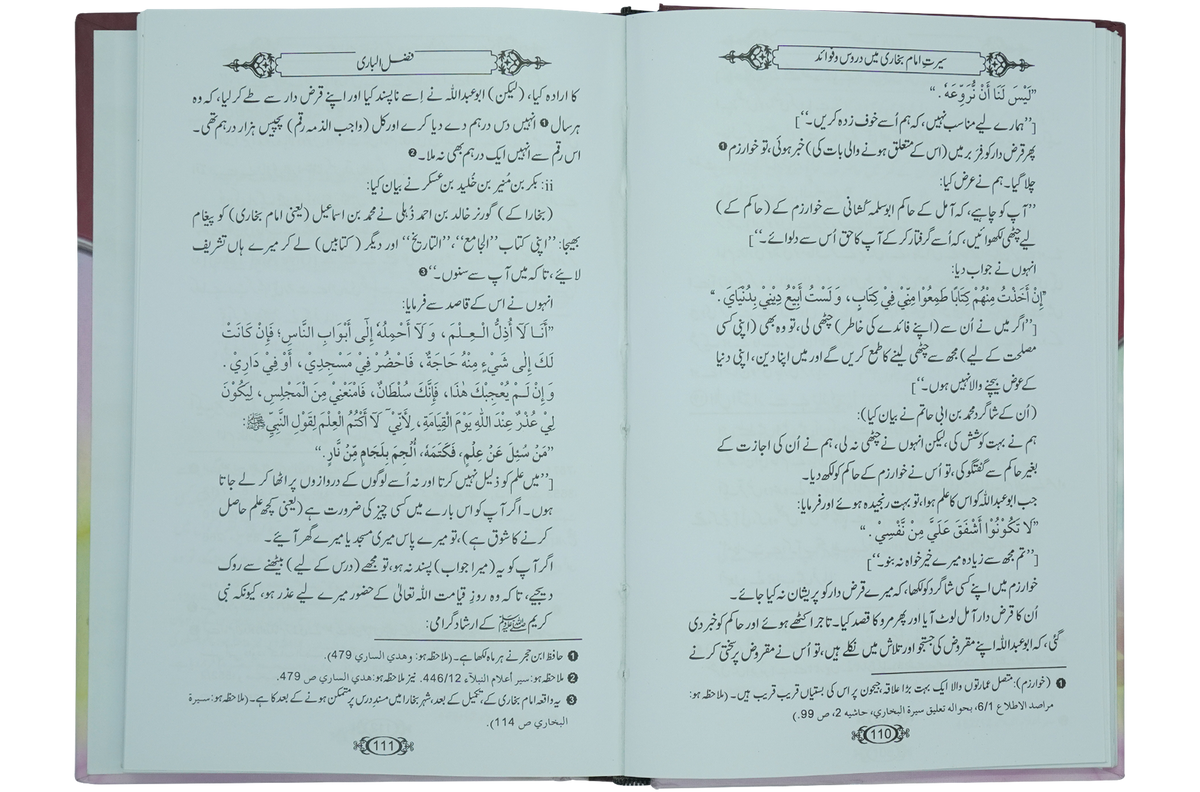 سیرتِ امام بخاری میں دروس و فوائد
”لَيْسَ لَنَا أَنْ نُّرَوِّعَهٗ .“
[’’ہمارے لیے مناسب نہیں، کہ ہم اُسے خوف زدہ کریں۔‘‘]
پھر قرض دار کو فَرَبر میں (اس کے متعلق ہونے والی بات کی) خبر ہوئی، تو خوارزم ❶
چلا گیا۔ ہم نے عرض کیا:
’’آپ کو چاہیے، کہ آمل کے حاکم ابوسلمہ کُشانی سے خوارزم کے (حاکم کے)
لیے چٹھی لکھوائیں، کہ اُسے گرفتار کر کے آپ کا حق اُس سے دلوائے۔‘‘]
انہوں نے جواب دیا:
”إِنْ أَخَذْتُ مِنْهُمْ كِتَابًا طَمِعُوْا مِنِّيْ فِيْ كِتَابٍ، وَ لَسْتُ أَبِيْعُ دِيْنِيْ بِدُنْيَايَ .“
[’’اگر میں نے اُن سے (اپنے فائدے کی خاطر) چٹھی لی، تو وہ بھی (اپنی کسی
مصلحت کے لیے) مجھ سے چٹھی لینے کا طمع کریں گے اور میں اپنا دین، اپنی دنیا
کے عوض بیچنے والا نہیں ہوں۔‘‘]
(اُن کے شاگرد محمد بن ابی حاتم نے بیان کیا):
ہم نے بہت کوشش کی، لیکن انہوں نے چٹھی نہ لی، ہم نے اُن کی اجازت کے
بغیر حاکم سے گفتگو کی، تو اُس نے خوارزم کے حاکم کو لکھ دیا۔
جب ابوعبداللہ کو اس کا علم ہوا، تو بہت رنجیدہ ہوئے اور فرمایا:
”لَا تَكُوْنُوْا أَشْفَقَ عَلَيَّ مِنْ نَّفْسِيْ .“
[’’تم مجھ سے زیادہ میرے خیر خواہ نہ بنو۔‘‘]
خوارزم میں اپنے کسی شاگرد کو لکھا، کہ میرے قرض دار کو پریشان نہ کیا جائے۔
اُن کا قرض دار آمل لوٹ آیا اور پھر مرو کا قصد کیا۔ تاجر اکٹھے ہوئے اور حاکم کو خبر دی
گئی، کہ ابوعبداللہ اپنے مقروض کی جستجو اور تلاش میں نکلے ہیں، تو اُس نے مقروض پر سختی کرنے
❶ (خوارزم): متصل عمارتوں والا ایک بہت بڑا علاقہ، جیحون پر اس کی بستیاں قریب قریب ہیں۔ (ملاحظہ ہو:
مراصد الاطلاع 6/1، بحوالہ تعلیق سیرۃ البخاری، حاشیہ 2، ص 99.)
110
فضل الباری
کا ارادہ کیا، (لیکن) ابوعبداللہ نے اِسے ناپسند کیا اور اپنے قرض دار سے طے کر لیا، کہ وہ
ہر سال ❶ انہیں دس درہم دے دیا کرے اور کل (واجب الذمہ رقم) پچیس ہزار درہم تھی۔
اس رقم سے انہیں ایک درہم بھی نہ ملا۔ ❷
ii: بکر بن مُنیر بن خُلید بن عسکر نے بیان کیا:
(بخارا کے) گورنر خالد بن احمد ذُہلی نے محمد بن اسماعیل (یعنی امام بخاری) کو پیغام
بھیجا: ’’اپنی کتاب ’’الجامع‘‘، ’’التاریخ‘‘ اور دیگر (کتابیں) لے کر میرے ہاں تشریف
لائیے، تاکہ میں آپ سے سنوں۔‘‘ ❸
انہوں نے اس کے قاصد سے فرمایا:
”أَنَا لَا أُذِلُّ الْعِلْمَ، وَ لَا أَحْمِلُهٗ إِلٰى أَبْوَابِ النَّاسِ؛ فَإِنْ كَانَتْ
لَكَ إِلٰى شَيْءٍ مِنْهُ حَاجَةٌ، فَاحْضُرْ فِيْ مَسْجِدِيْ، أَوْ فِيْ دَارِيْ .
وَ إِنْ لَمْ يُعْجِبْكَ هٰذَا، فَإِنَّكَ سُلْطَانٌ، فَامْنَعْنِيْ مِنَ الْمَجْلِسِ، لِيَكُوْنَ
لِيْ عُذْرٌ عِنْدَ اللهِ يَوْمَ الْقِيَامَةِ، لِأَنِّيْ لَا أَكْتُمُ الْعِلْمَ لِقَوْلِ النَّبِيِّ ﷺ:
”مَنْ سُئِلَ عَنْ عِلْمٍ، فَكَتَمَهٗ، أُلْجِمَ بِلِجَامٍ مِّنْ نَّارٍ.“
[’’میں علم کو ذلیل نہیں کرتا اور نہ اُسے لوگوں کے دروازوں پر اٹھا کر لے جاتا
ہوں۔ اگر آپ کو اس بارے میں کسی چیز کی ضرورت ہے (یعنی کچھ علم حاصل
کرنے کا شوق ہے)، تو میرے پاس میری مسجد یا میرے گھر آئیے۔
اگر آپ کو یہ (میرا جواب) پسند نہ ہو، تو مجھے (درس کے لیے) بیٹھنے سے روک
دیجیے، تاکہ وہ روزِ قیامت اللہ تعالیٰ کے حضور میرے لیے عذر ہو، کیونکہ نبی
کریم ﷺ کے ارشادِ گرامی:
❶ حافظ ابن حجر نے ہر ماہ لکھا ہے۔ (ملاحظہ ہو: وهدي الساري 479).
❷ ملاحظہ ہو: سير أعلام النبلآء 446/12. نیز ملاحظہ ہو: هدي الساري ص 479.
❸ یہ واقعہ امام بخاری کے، تکمیل کے بعد، شہر بخارا میں مسندِ درس پر متمکن ہونے کے بعد کا ہے۔ (ملاحظہ ہو: سيرة
البخاري ص 114).
111